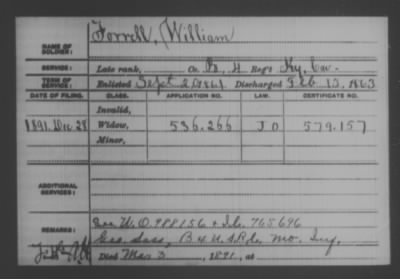 NAME OF SOLDIER: Forrell, William
SERVICE: Late rank, Co. H Reg't Ky. Cav.
TERM OF SERVICE: Enlisted Sept 1861 Discharged Feb 13, 1863
DATE OF FILING. CLASS. APPLICATION NO. LAW. CERTIFICATE NO.
Invalid,
1891, Dec 28 Widow, 536.266 J O 579.157
Minor,
ADDITIONAL SERVICES:
W.O. 988156 + 765696
REMARKS: B 4 U.S.R.C. Mo. Inf.
Died Mar 3, 1891, at